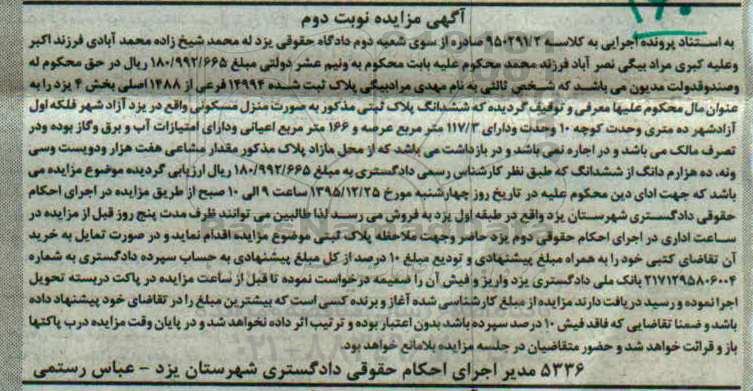 ۱۶۰
آگهی مزایده نوبت دوم
به استناد پرونده اجرایی به کلاسه ۹۵۰۲۹۱/۲ صادره از سوی شعبه دوم دادگاه حقوقی یزد له محمد شیخ زاده محمد آبادی فرزند اکبر
وعلیه کبری مراد بیگی نصر آباد فرزند محمد محکوم علیه بابت محکوم به ونیم عشر دولتی مبلغ ۱۸۰/۹۹۲/۶۶۵ ریال در حق محکوم له
وصندوقدولت مدیون می باشد که شخص ثالثی به نام مهدی مرادبیگی پلاک ثبت شده ۱۴۹۹۴ فرعی از ۱۴۸۸ اصلی بخش ۴ یزد را به
عنوان مال محکوم علیها معرفی و توقیف گردیده که ششدانگ پلاک ثبتی مذکور به صورت منزل مسکونی واقع در یزد آزاد شهر فلکه اول
آزادشهر ده متری وحدت کوچه ۱۰ وحدت ودارای ۱۱۷/۳ متر مربع عرصه و ۱۶۶ متر مربع اعیانی ودارای امتیازات آب و برق وگاز بوده ودر
تصرف مالک می باشد و در اجاره نمی باشد و در بازداشت می باشد که از محل مازاد پلاک مذکور مقدار مشاعی هفت هزار ودویست وسی
ونه، ده هزارم دانگ از ششدانگ که طبق نظر کارشناس رسمی دادگستری به مبلغ ۱۸۰/۹۹۲/۶۶۵ ریال ارزیابی گردیده موضوع مزایده می
باشد که جهت ادای دین محکوم علیه در تاریخ روز چهارشنبه مورخ ۱۳۹۵/۱۲/۲۵ ساعت ۹ الی ۱۰ صبح از طریق مزایده در اجرای احکام
حقوقی دادگستری شهرستان یزد واقع در طبقه اول یزد به فروش می رسد لذا طالبین می توانند ظرف مدت پنج روز قبل از مزایده در
ساعت اداری در اجرای احکام حقوقی دوم یزد حاضر وجهت ملاحظه پلاک ثبتی موضوع مزایده اقدام نماید و در صورت تمایل به خرید
آن تقاضای کتبی خود را به همراه مبلغ پیشنهادی و تودیع مبلغ ۱۰ درصد از کل مبلغ پیشنهادی به حساب سپرده دادگستری به شماره
۲۱۷۱۲۹۵۸۰۶۰۰۴ بانک ملی دادگستری یزد واریز و فیش آن را ضمیمه درخواست نموده تا قبل از ساعت مزایده در پاکت دربسته تحویل
اجرا نموده و رسید دریافت دارند مزایده از مبلغ کارشناسی شده آغاز و برنده کسی است که بیشترین مبلغ را در تقاضای خود پیشنهاد داده
باشد و ضمنا تقاضایی که فاقد فیش ۱۰ درصد سپرده باشد بدون اعتبار بوده و ترتیب اثر داده نخواهد شد و در پایان وقت مزایده درب پاکتها
باز و قرائت خواهد شد و حضور متقاضیان در جلسه مزایده بلامانع خواهد بود.
۵۳۳۶ مدیر اجرای احکام حقوقی دادگستری شهرستان یزد - عباس رستمی